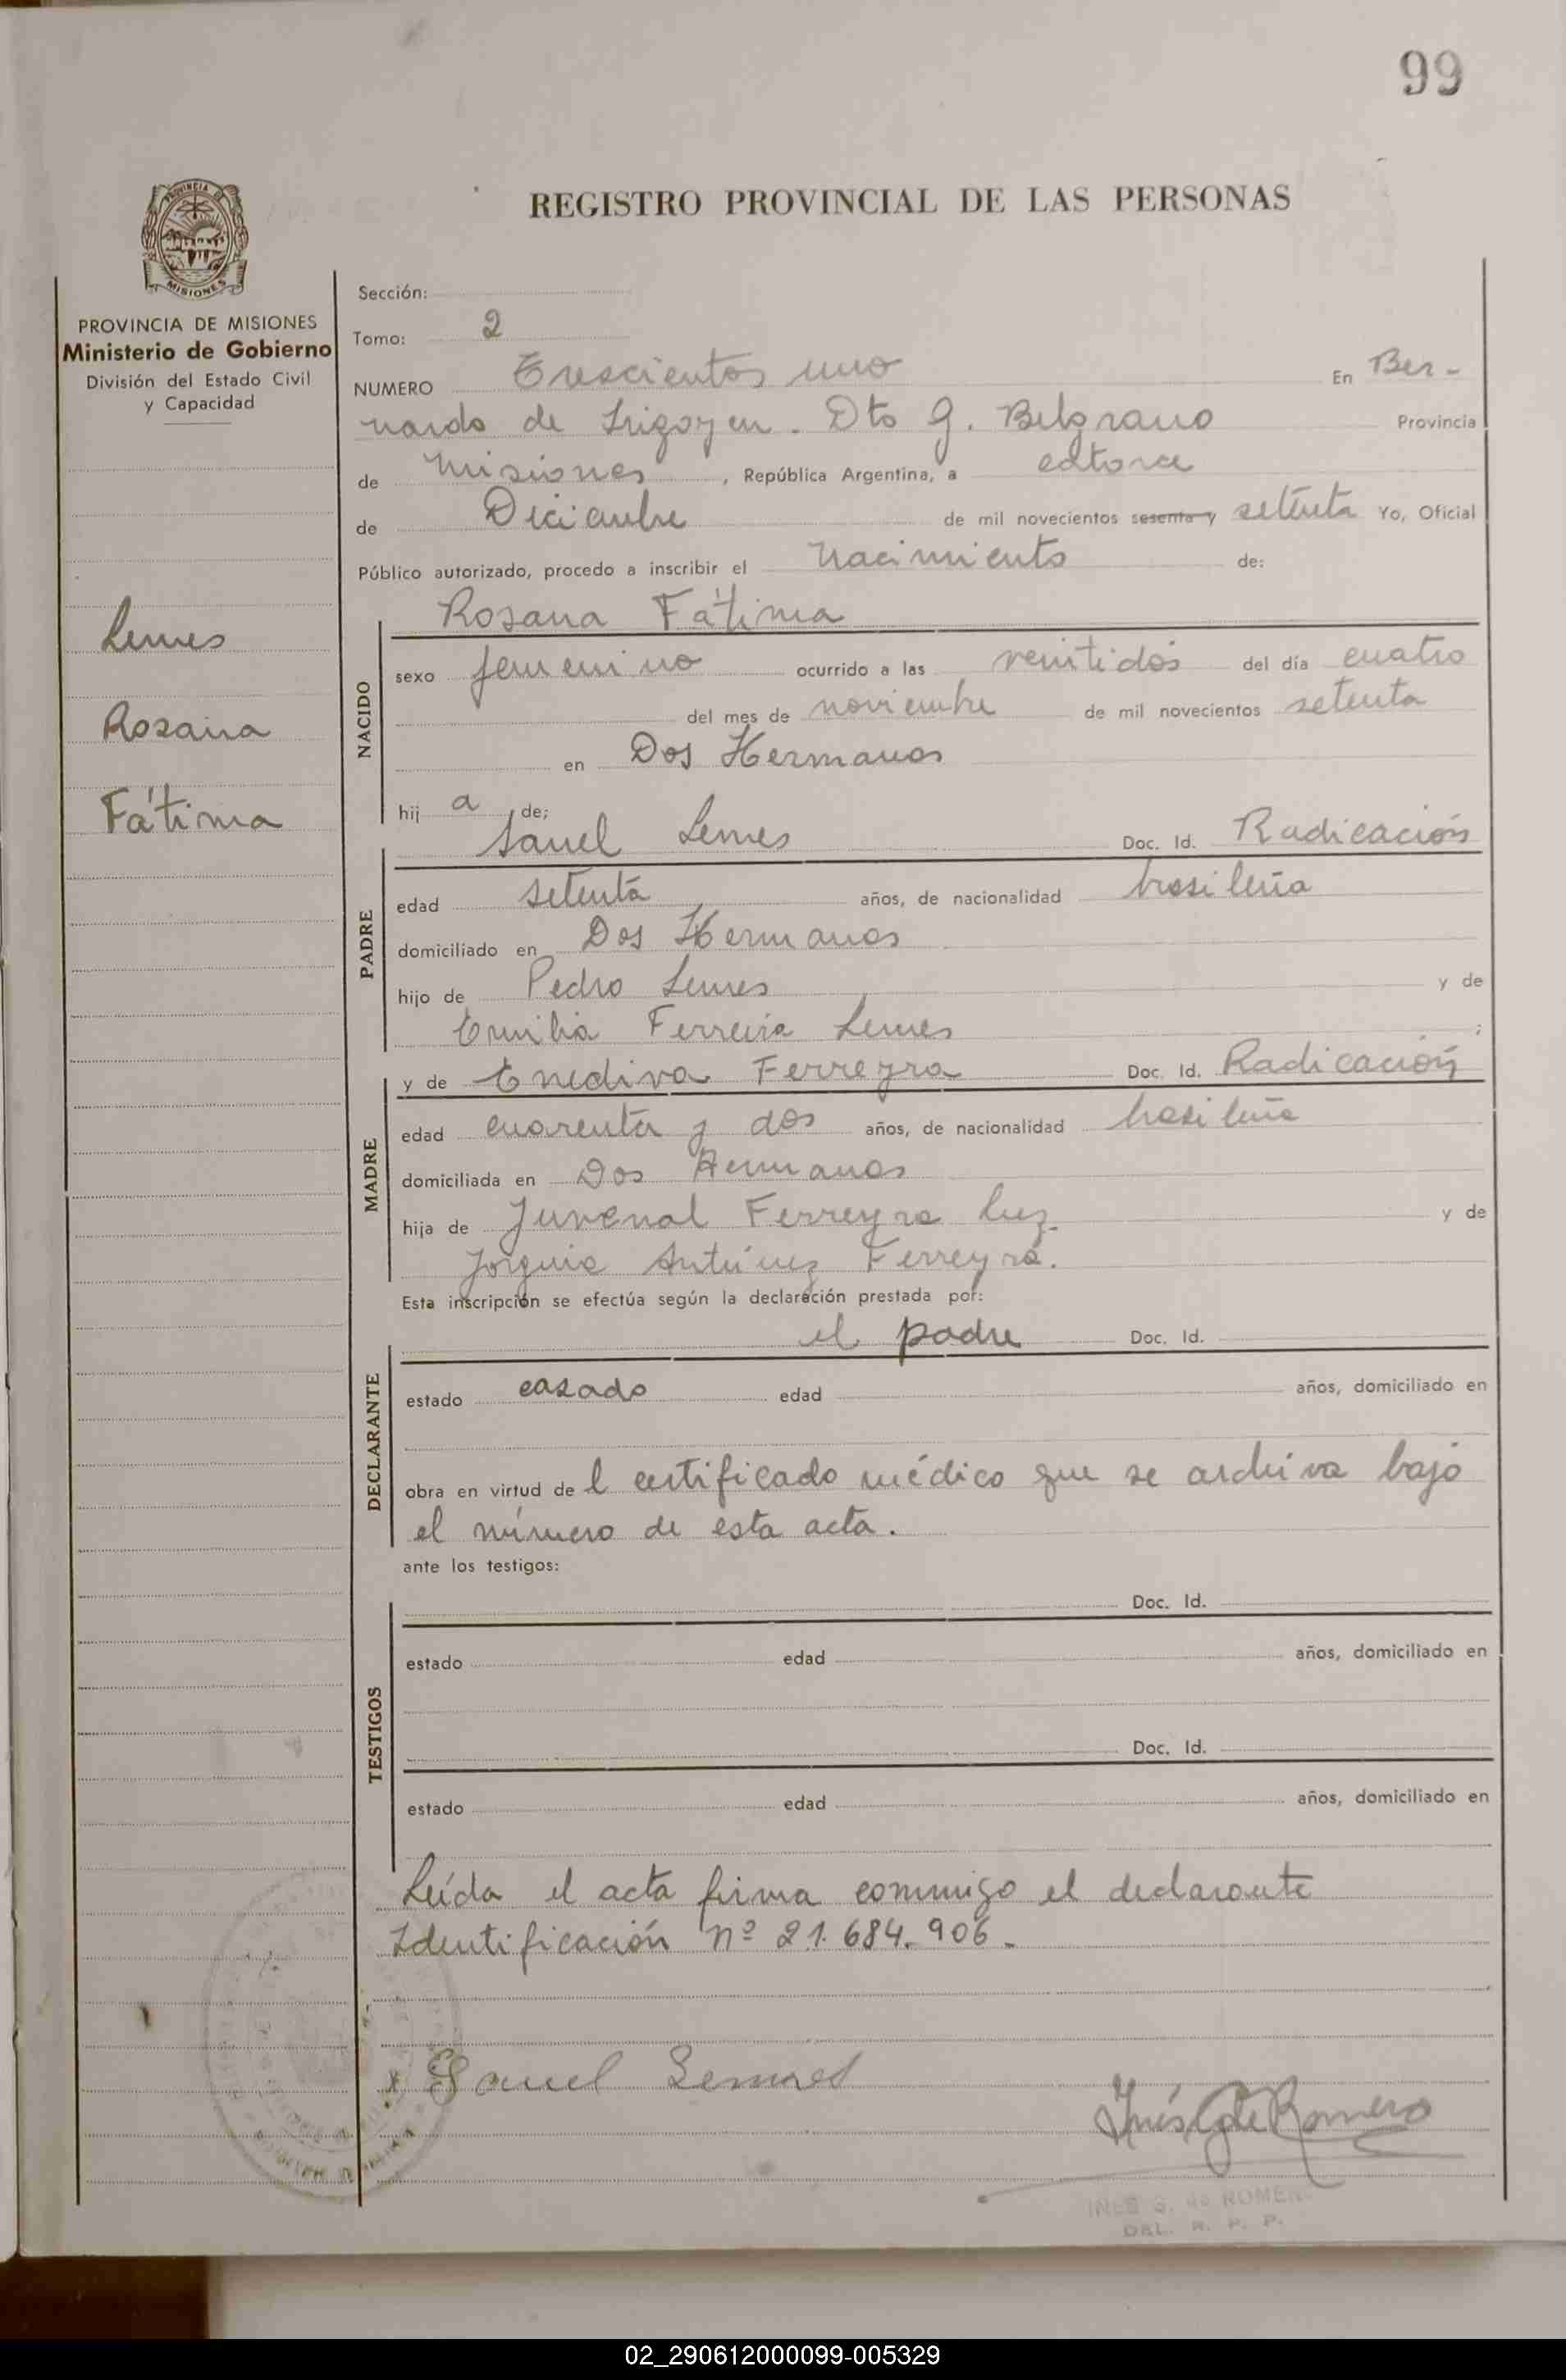 99
REGISTRO PROVINCIAL DE LAS PERSONAS
PROVINCIA DE MISIONES
Ministerio de Gobierno
División del Estado Civil
y Capacidad
Lemes
Rosana
Fátima
Sección:
Tomo: 2
NUMERO Trescientos uno En Ber-
nardo de Irigoyen. Dto G. Belgrano Provincia
de Misiones, República Argentina, a catorce
de Diciembre de mil novecientos sesenta y setenta Yo, Oficial
Público autorizado, procedo a inscribir el nacimiento de:
Rosana Fátima
NACIDO
sexo femenino ocurrido a las venitidós del día cuatro
del mes de noviembre de mil novecientos setenta
en Dos Hermanos
hij a de;
Sauel Lemes Doc. Id. Radicación
PADRE
edad setenta años, de nacionalidad brasileña
domiciliado en Dos Hermanos
hijo de Pedro Lemes y de
Emilia Ferreira Lemes ;
y de Enediva Ferreyra Doc. Id. Radicación
MADRE
edad cuarenta y dos años, de nacionalidad brasileña
domiciliada en Dos Hermanos
hija de Juvenal Ferreyra Luz. y de
Antúnez Ferreyra.
Esta inscripción se efectúa según la declaración prestada por:
el padre Doc. Id.
DECLARANTE
estado casado edad años, domiciliado en
obra en virtud de l certificado médico que se archiva bajo
el número de esta acta.
ante los testigos:
Doc. Id.
TESTIGOS
estado edad años, domiciliado en
Doc. Id.
estado edad años, domiciliado en
Leída el acta firma conmigo el declarante
Identificación Nº 21.684.906.-
x Sauel Lemes
Inés G de Romero
INES G. de ROMERO
DEL. R. P. P.
02_290612000099-005329